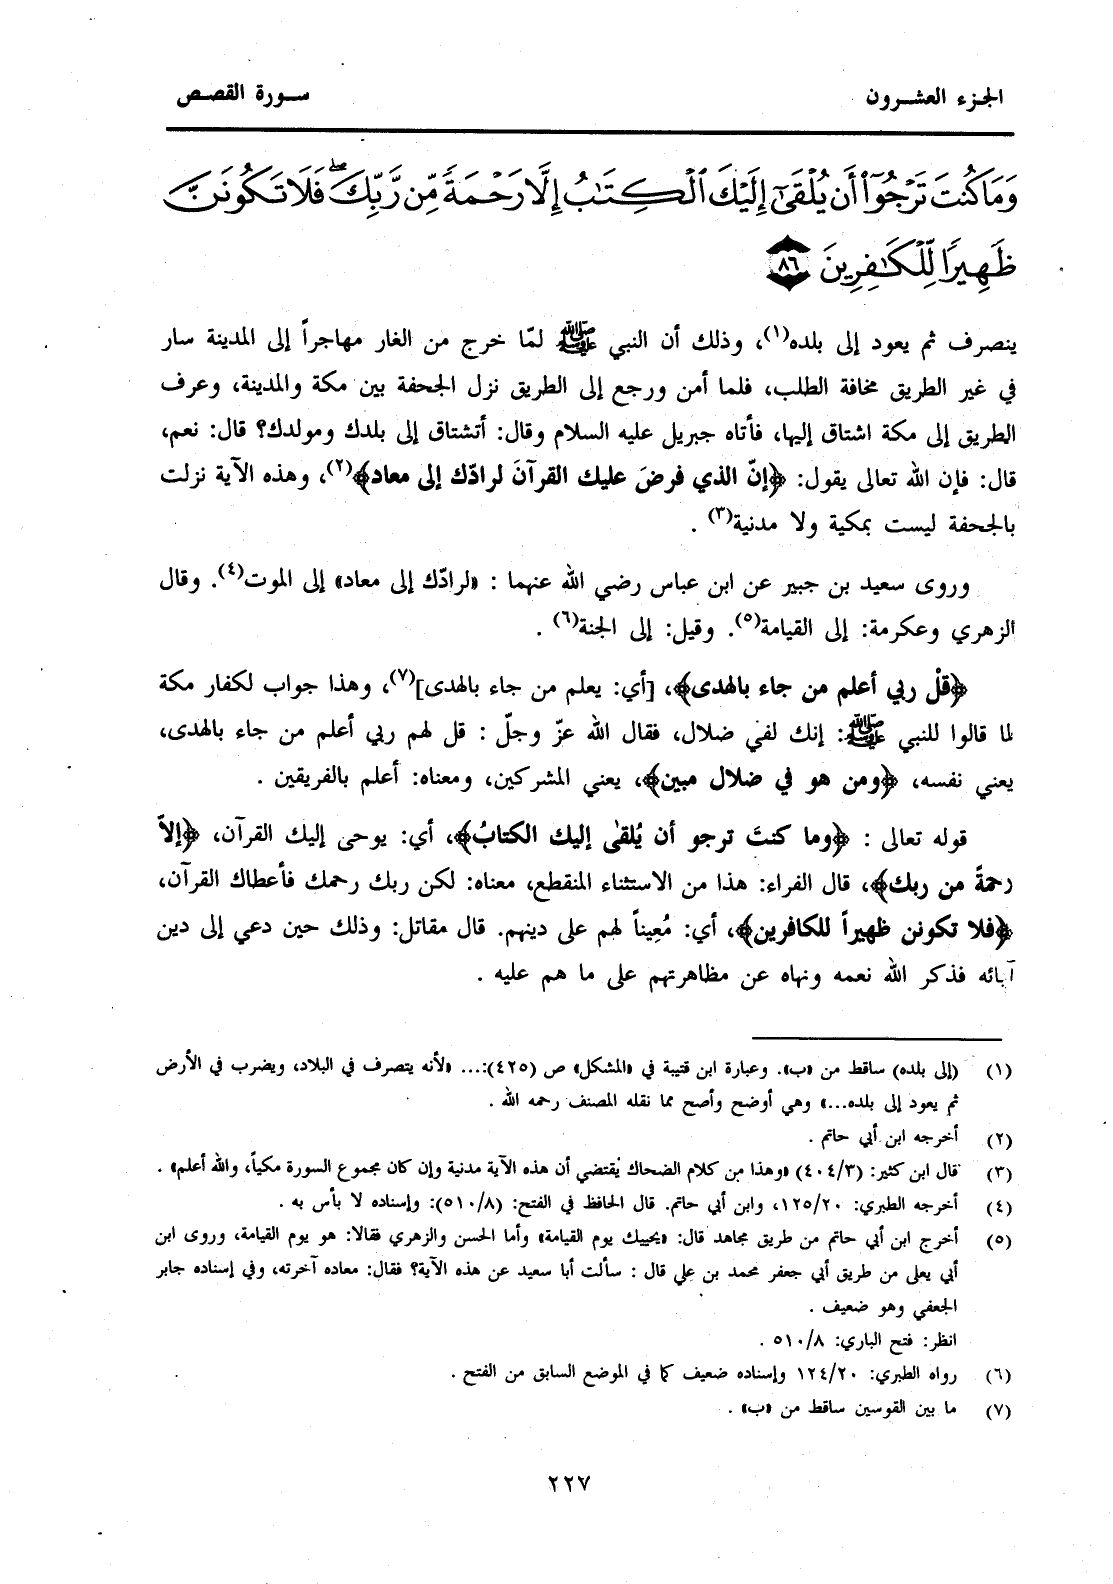 الجزء العشرون
سورة القصص
وَمَا كُنتَ تَرْجُوٓا۟ أَن يُلْقَىٰٓ إِلَيْكَ ٱلْكِتَٰبُ إِلَّا رَحْمَةً مِّن رَّبِّكَ ۖ فَلَا تَكُونَنَّ
ظَهِيرًا لِّلْكَٰفِرِينَ ٨٦
ينصرف ثم يعود إلى بلده(١)، وذلك أن النبي ﷺ لمّا خرج من الغار مهاجراً إلى المدينة سار
في غير الطريق مخافة الطلب، فلما أمن ورجع إلى الطريق نزل الجحفة بين مكة والمدينة، وعرف
الطريق إلى مكة اشتاق إليها، فأتاه جبريل عليه السلام وقال: أتشتاق إلى بلدك ومولدك؟ قال: نعم،
قال: فإن الله تعالى يقول: ﴿إنّ الذي فرضَ عليك القرآنَ لرادّك إلى معاد﴾(٢)، وهذه الآية نزلت
بالجحفة ليست بمكية ولا مدنية(٣) .
وروى سعيد بن جبير عن ابن عباس رضي الله عنهما : «لرادّك إلى معاد» إلى الموت(٤). وقال
الزهري وعكرمة: إلى القيامة(٥). وقيل: إلى الجنة(٦) .
﴿قلْ ربي أعلم من جاء بالهدى﴾، [أي: يعلم من جاء بالهدى](٧)، وهذا جواب لكفار مكة
لما قالوا للنبي ﷺ: إنك لفي ضلال، فقال الله عزّ وجلّ : قل لهم ربي أعلم من جاء بالهدى،
يعني نفسه، ﴿ومن هو في ضلال مبين﴾، يعني المشركين، ومعناه: أعلم بالفريقين .
قوله تعالى : ﴿وما كنتَ ترجو أن يُلقىٰ إليك الكتابُ﴾، أي: يوحى إليك القرآن، ﴿إلاّ
رحمةً من ربك﴾، قال الفراء: هذا من الاستثناء المنقطع، معناه: لكن ربك رحمك فأعطاك القرآن،
﴿فلا تكونن ظهيراً للكافرين﴾، أي: مُعِيناً لهم على دينهم. قال مقاتل: وذلك حين دعي إلى دين
آبائه فذكر الله نعمه ونهاه عن مظاهرتهم على ما هم عليه .
(١) (إلى بلده) ساقط من «ب». وعبارة ابن قتيبة في «المشكل» ص (٤٢٥):... «لأنه يتصرف في البلاد، ويضرب في الأرض
ثم يعود إلى بلده...» وهي أوضح وأصح مما نقله المصنف رحمه الله .
(٢) أخرجه ابن أبي حاتم .
(٣) قال ابن كثير: (٤٠٤/٣) «وهذا من كلام الضحاك يُقتضي أن هذه الآية مدنية وإن كان مجموع السورة مكياً، والله أعلم» .
(٤) أخرجه الطبري: ١٢٥/٢٠، وابن أبي حاتم. قال الحافظ في الفتح: (٥١٠/٨): وإسناده لا بأس به .
(٥) أخرج ابن أبي حاتم من طريق مجاهد قال: «يحييك يوم القيامة» وأما الحسن والزهري فقالا: هو يوم القيامة، وروى ابن
أبي يعلى من طريق أبي جعفر محمد بن علي قال : سألت أبا سعيد عن هذه الآية؟ فقال: معاده آخرته، وفي إسناده جابر
الجعفي وهو ضعيف .
انظر: فتح الباري: ٥١٠/٨ .
(٦) رواه الطبري: ١٢٤/٢٠ وإسناده ضعيف كما في الموضع السابق من الفتح .
(٧) ما بين القوسين ساقط من «ب» .
٢٢٧